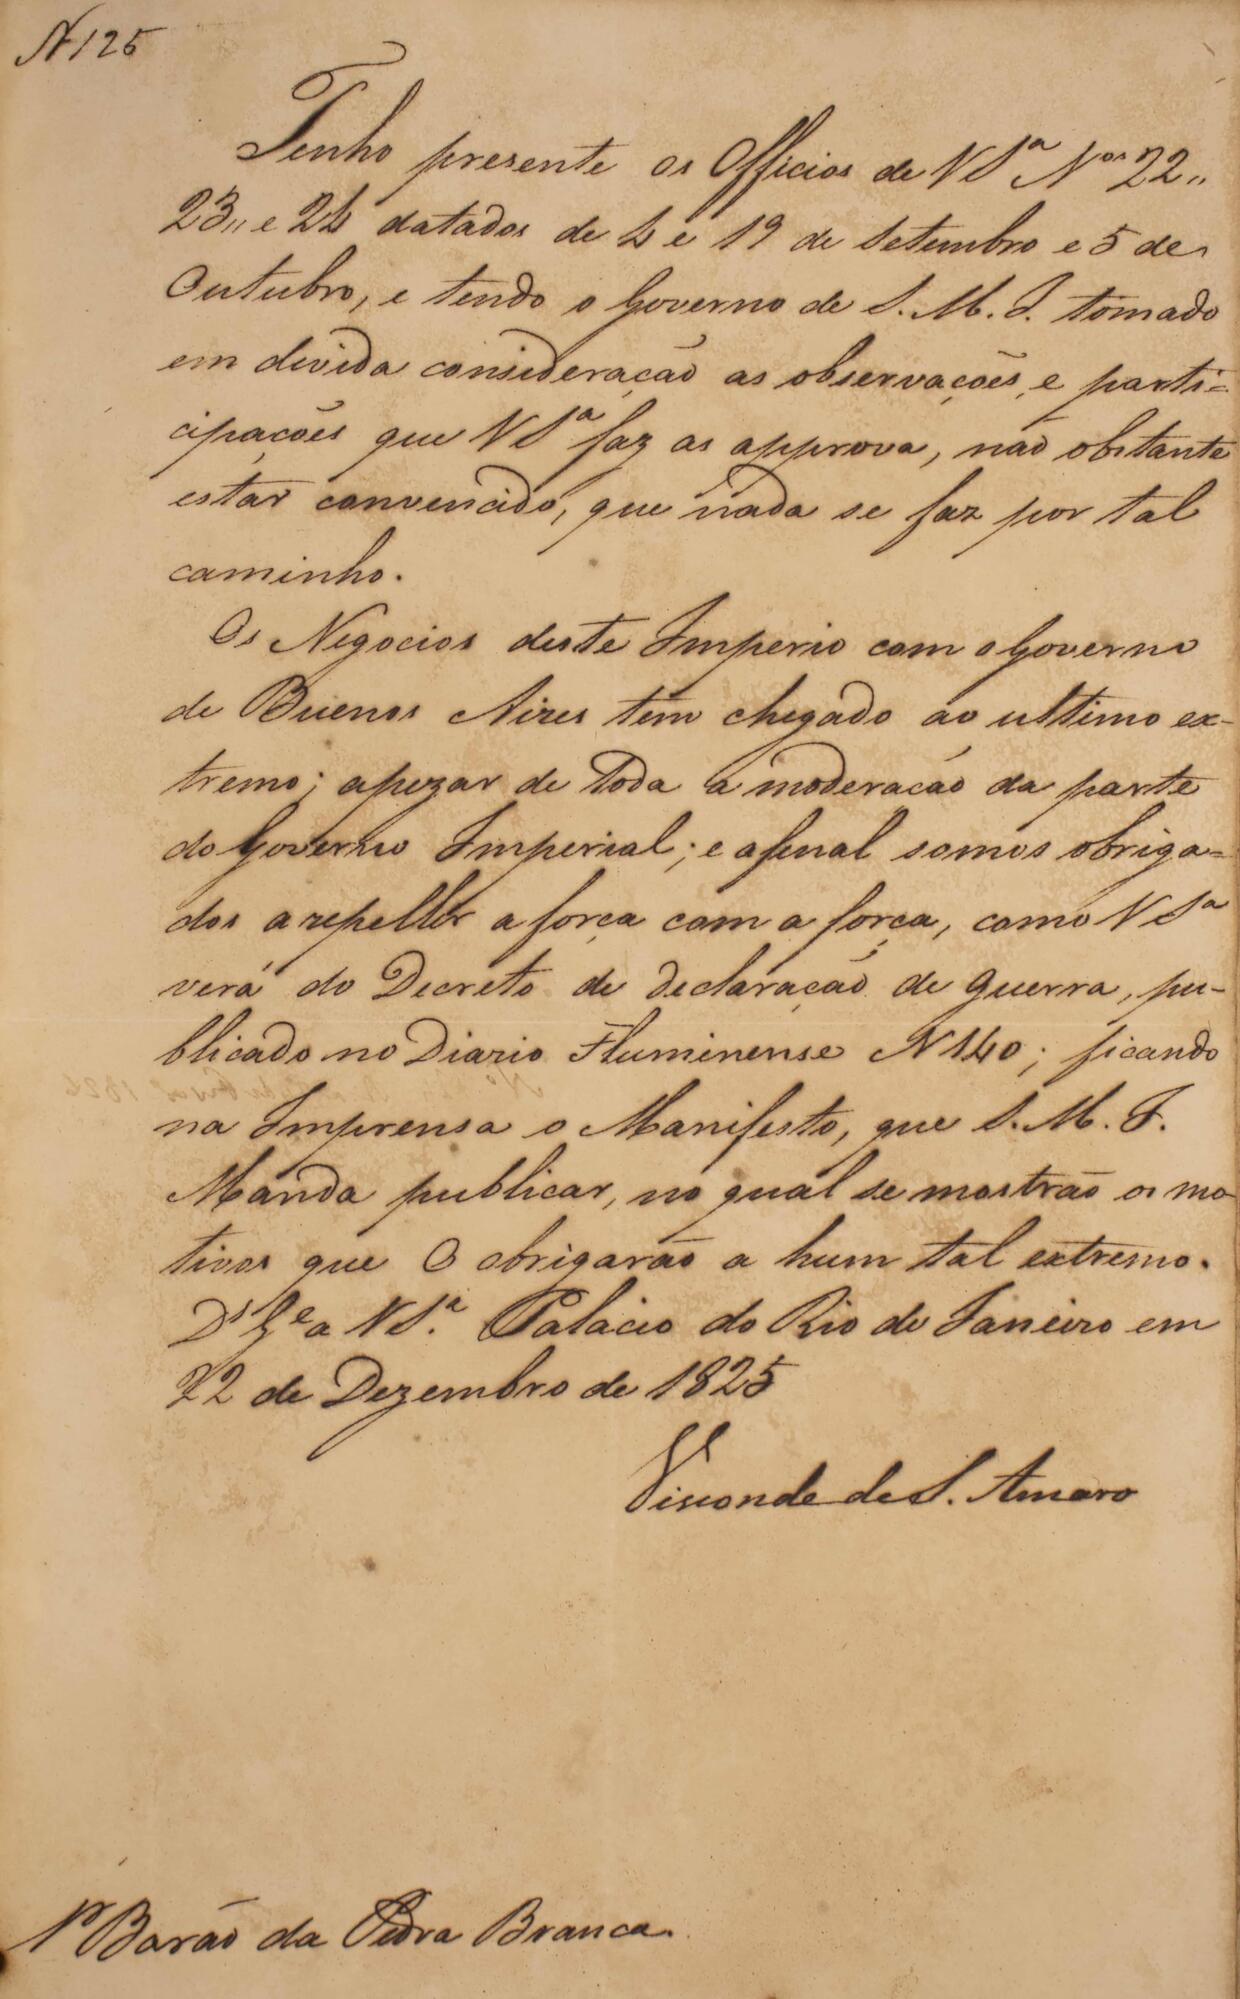 N 125
Tenho presente os Officios de V Sª Nos 22,,
23,, e 24 datados de 4 e 19 de Setembro e 5 de
Outubro, e tendo o Governo de S. M. I. tomado
em devida consideração as observações, e parti=
cipações que V Sª faz as approva, não obstante
estar convencido, que nada se faz por tal
caminho.
Os Negocios deste Imperio com o Governo
de Buenos Aires tem chegado ao ultimo ex-
tremo; apezar de toda a moderação da parte
do Governo Imperial; e afinal somos obriga=
dos a repellir a força com a força, como V Sª
verá do Decreto de declaração de guerra, pu-
blicado no Diario Fluminense N 140; ficando
na Imprensa o Manifesto, que S. M. I.
Manda publicar, no qual se mostrão os mo-
tivos que O obrigarão a hum tal extremo.
Ds Ge a V Sª. Palacio do Rio de Janeiro em
22 de Dezembro de 1825
Visconde de S. Amaro
Sr Barão da Pedra Branca.